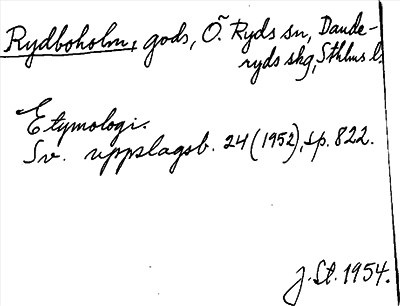 Rydboholm, gods, Ö. Ryds sn, Dande-
ryds skg, Sthlms l.
Etymologi.
Sv. uppslagsb. 24 (1952), sp. 822.
J. St. 1954.